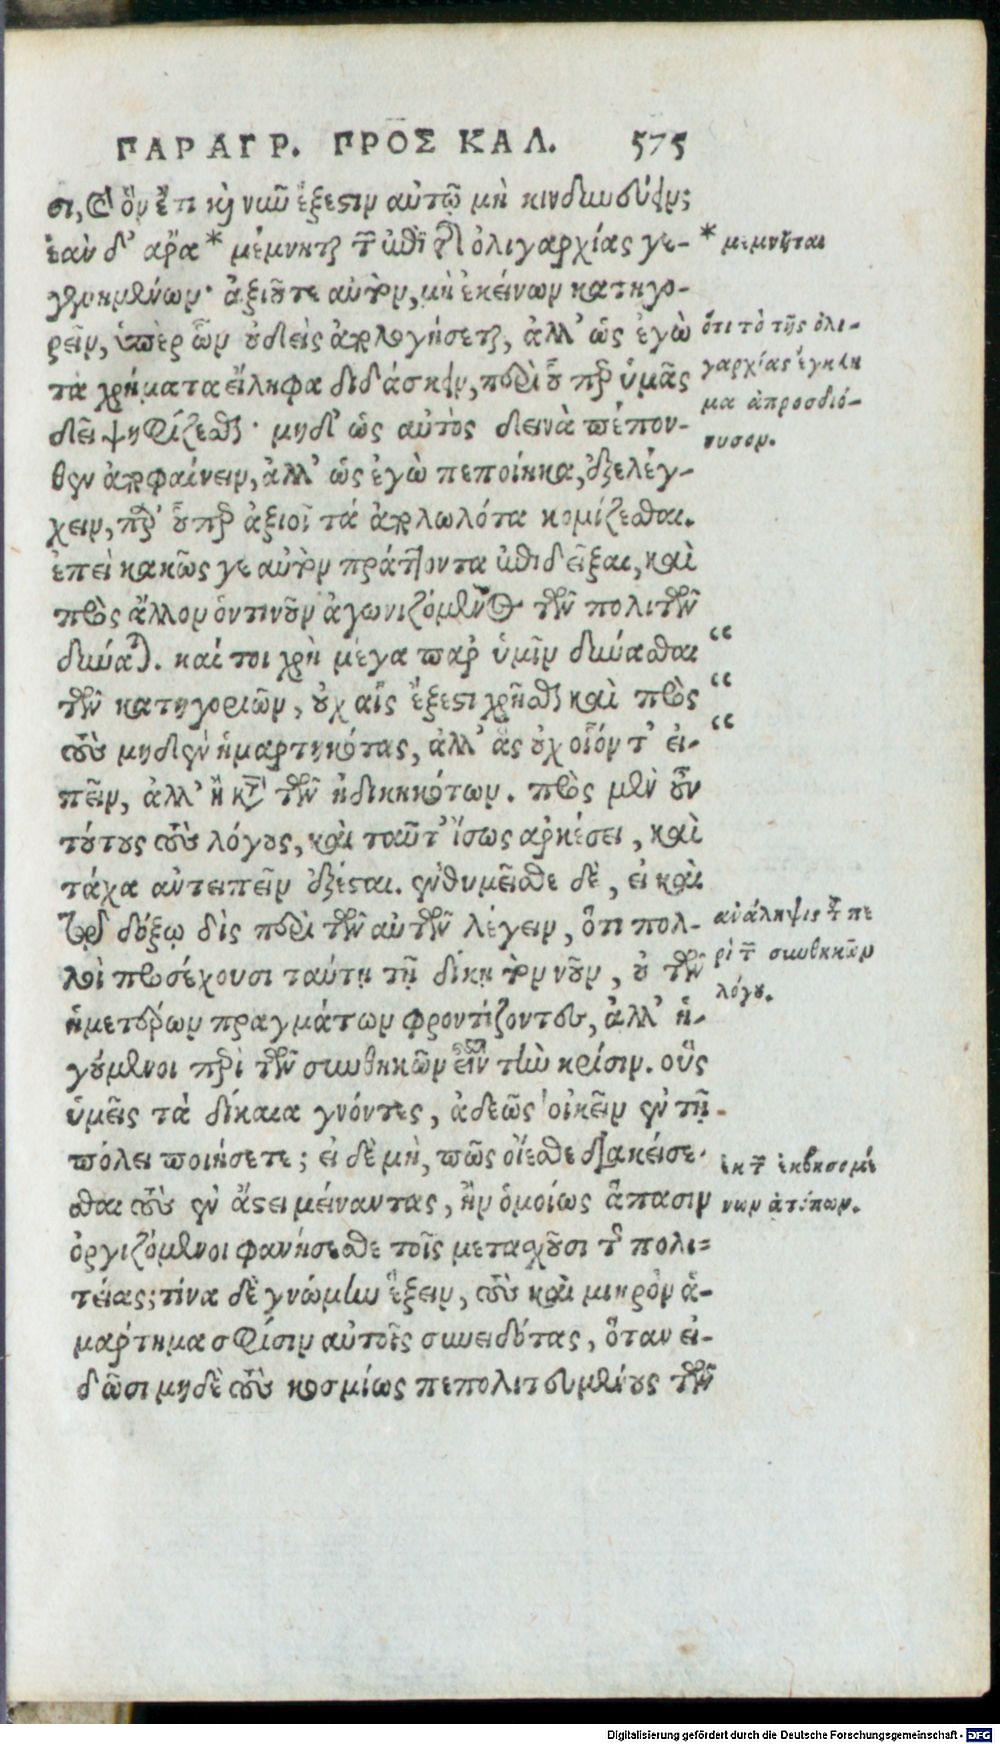 ΠΑΡΑΓΡ. ΠΡΟΣ ΚΑΛ. 575
σι, καὶ ὃν ἔτι καὶ νῦν ἔξεστιν αὐτῷ μὴ κινδυνεύειν;
ἐὰν δ' ἄρα * μέμνηται τῶν ἐπὶ τῆς ὀλιγαρχίας γε-
γενημένων· ἀξιοῦτε αὐτὸν, μὴ ἐκείνων κατηγο-
ρεῖν, ὑπὲρ ὧν οὐδεὶς ἀπολογήσεται, ἀλλ' ὡς ἐγὼ
τὰ χρήματα εἴληφα διδάσκειν, περὶ οὗ περ ὑμᾶς
δεῖ ψηφίζεσθαι· μηδ' ὡς αὐτὸς δεινὰ πέπον-
θεν ἀποφαίνειν, ἀλλ' ὡς ἐγὼ πεποίηκα, ἐξελέγ-
χειν, παρ' οὗ περ ἀξιοῖ τά ἀπολωλότα κομίζεσθαι.
ἐπεὶ κακῶς γε αὐτὸν πράττοντα ἐπιδεῖξαι, καὶ
πρὸς ἄλλον ὁντινοῦν ἀγωνιζόμενος τῶν πολιτῶν
δύναται. καί τοι χρὴ μέγα παρ' ὑμῖν δύνασθαι “
τῶν κατηγοριῶν, οὐχ αἷς ἔξεστι χρῆσθαι καὶ πρὸς “
τοὺς μηδὲν ἡμαρτηκότας, ἀλλ' ἃς οὐχ οἷόν τ' εἰ- “
πεῖν, ἀλλ' ἢ κατὰ τῶν ἠδικηκότων. πρὸς μὲν οὖν
τούτους τοὺς λόγους, καὶ ταῦτ' ἴσως ἀρκέσει, καὶ
τάχα ἀντειπεῖν ἐξέσται. ἐνθυμεῖσθε δὲ, εἰ καὶ
τῳ δόξω δὶς περὶ τῶν αὐτῶν λέγειν, ὅτι πολ-
λοὶ προσέχουσι ταύτῃ τῇ δίκῃ τὸν νοῦν, οὐ τῶν
ἡμετέρων πραγμάτων φροντίζοντες, ἀλλ' ἡ-
γούμενοι περὶ τῶν συνθηκῶν εἶναι τὴν κρίσιν. οὓς
ὑμεῖς τὰ δίκαια γνόντες, ἀδεῶς οἰκεῖν ἐν τῇ
πόλει ποιήσετε; εἰ δὲ μὴ, πῶς οἴεσθε διακείσε-
σθαι τοὺς ἐν ἄστει μείναντας, ἢν ὁμοίως ἅπασιν
ὀργιζόμενοι φανήσεσθε τοῖς μετασχοῦσι τῆς πολι-
τείας; τίνα δὲ γνώμην ἕξειν, τοὺς καὶ μικρὸν ἁ-
μάρτημα σφίσιν αὐτοῖς συνειδότας, ὅταν εἰ-
δῶσι μηδὲ τοὺς κοσμίως πεπολιτευμένους τῶν
* μεμνῆται
ὅτι τὸ τῆς ὀλι-
γαρχίας ἔγκλη
μα ἀπροσδιό-
νυσον.
ἀνάληψις τοῦ πε
ρὶ τῶν συνθηκῶν
λόγου.
ἐκ τῶν ἐκβησομέ
νων ἀτόπων.
Digitalisierung gefördert durch die Deutsche Forschungsgemeinschaft - DFG